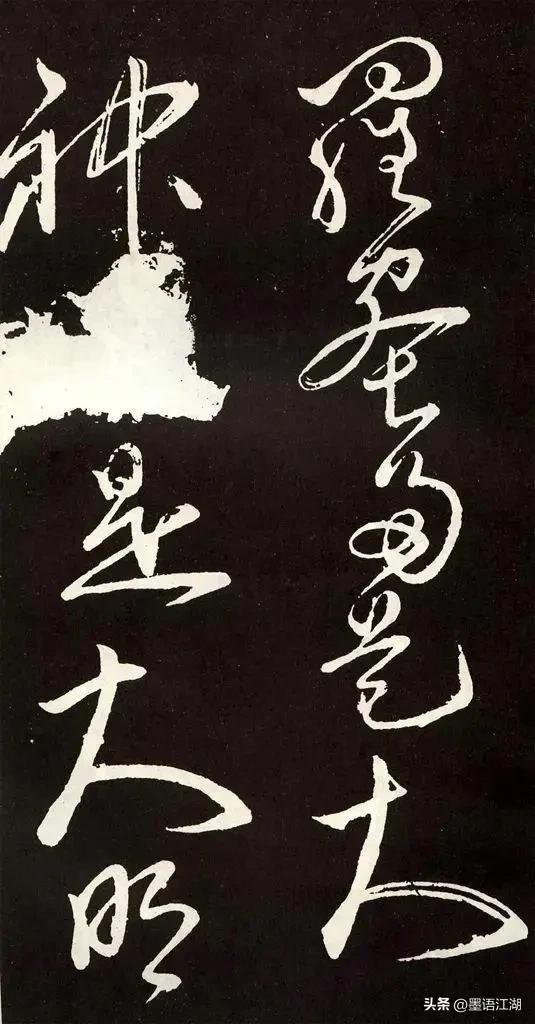 羅蜜多是大
神是大明
头条 @墨语江湖